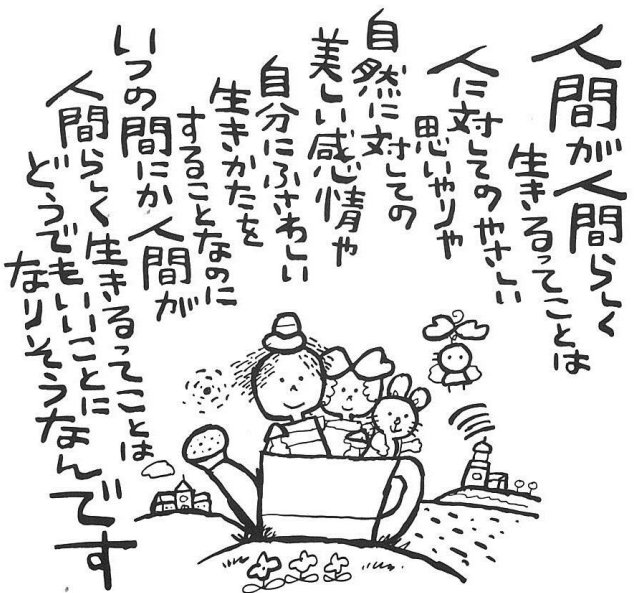 人間が人間らしく
生きるってことは
人に対してのやさしい
思いやりや
自然に対しての
美しい感情や
自分にふさわしい
生きかたを
することなのに
いつの間にか人間が
人間らしく生きるってことは
どうでもいいことに
なりそうなんです